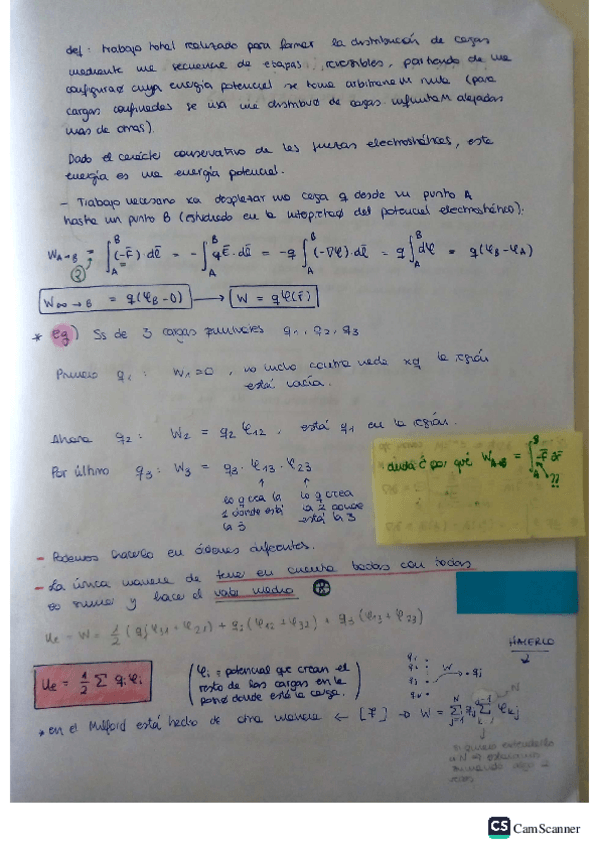 def: trabajo total realizado para formar la distribución de cargas
mediante una secuencia de etapas reversibles, partiendo de una
configurac cuya energía potencial se toma arbitrariam nula (para
cargas confinadas se usa una distribuc de cargas infinitam alejadas
unas de otras).
Dado el carácter conservativo de las fuerzas electrostáticas, esta
energía es una energía potencial.
- Trabajo necesario xa desplazar una carga q desde un punto A
hasta un punto B (estudiado en la del potencial electrostático):
W_{A→B} = ∫_A^B (-F̄)·dl̄ = -∫_A^B qĒ·dl̄ = -q ∫_A^B (-∇φ)·dl̄ = q∫_A^B dφ = q(φ_B-φ_A)
②
W_{∞→B} = q(φ_B-0) → W = qφ(r̄)
* eg) Ss de 3 cargas puntuales q_1, q_2, q_3
Primero q_1: W_1=0, no lucho contra nada xq la región
está vacía.
Ahora q_2: W_2 = q_2 φ_{12}, está q_1 en la región.
Por último q_3: W_3 = q_3·φ_{13}·φ_{23}
lo q crea la
1 donde está
la 3
lo q crea
la 2 donde
está la 3
duda ¿por qué W_{A→B} = ∫_A^B -F̄ dr̄
??
- Podemos hacerlo en órdenes diferentes.
- La única manera de tener en cuenta todas con todas
es sumar y hacer el valor medio
U_e = W = 1/2 (q_1(φ_{31}+φ_{21}) + q_2(φ_{12}+φ_{32}) + q_3(φ_{13}+φ_{23})
HACERLO
U_e = 1/2 Σ q_i φ_i
(φ_i = potencial que crean el
resto de las cargas en la
donde está la carga.)
q_i
q_i
q_j
q_k
W
q_j
* en el Milford está hecho de otra manera ← [F] → W = Σ_{j=1}^N q_j Σ_{k} φ_{kj}
N
j
a N
sumando algo 2
veces
CS CamScanner